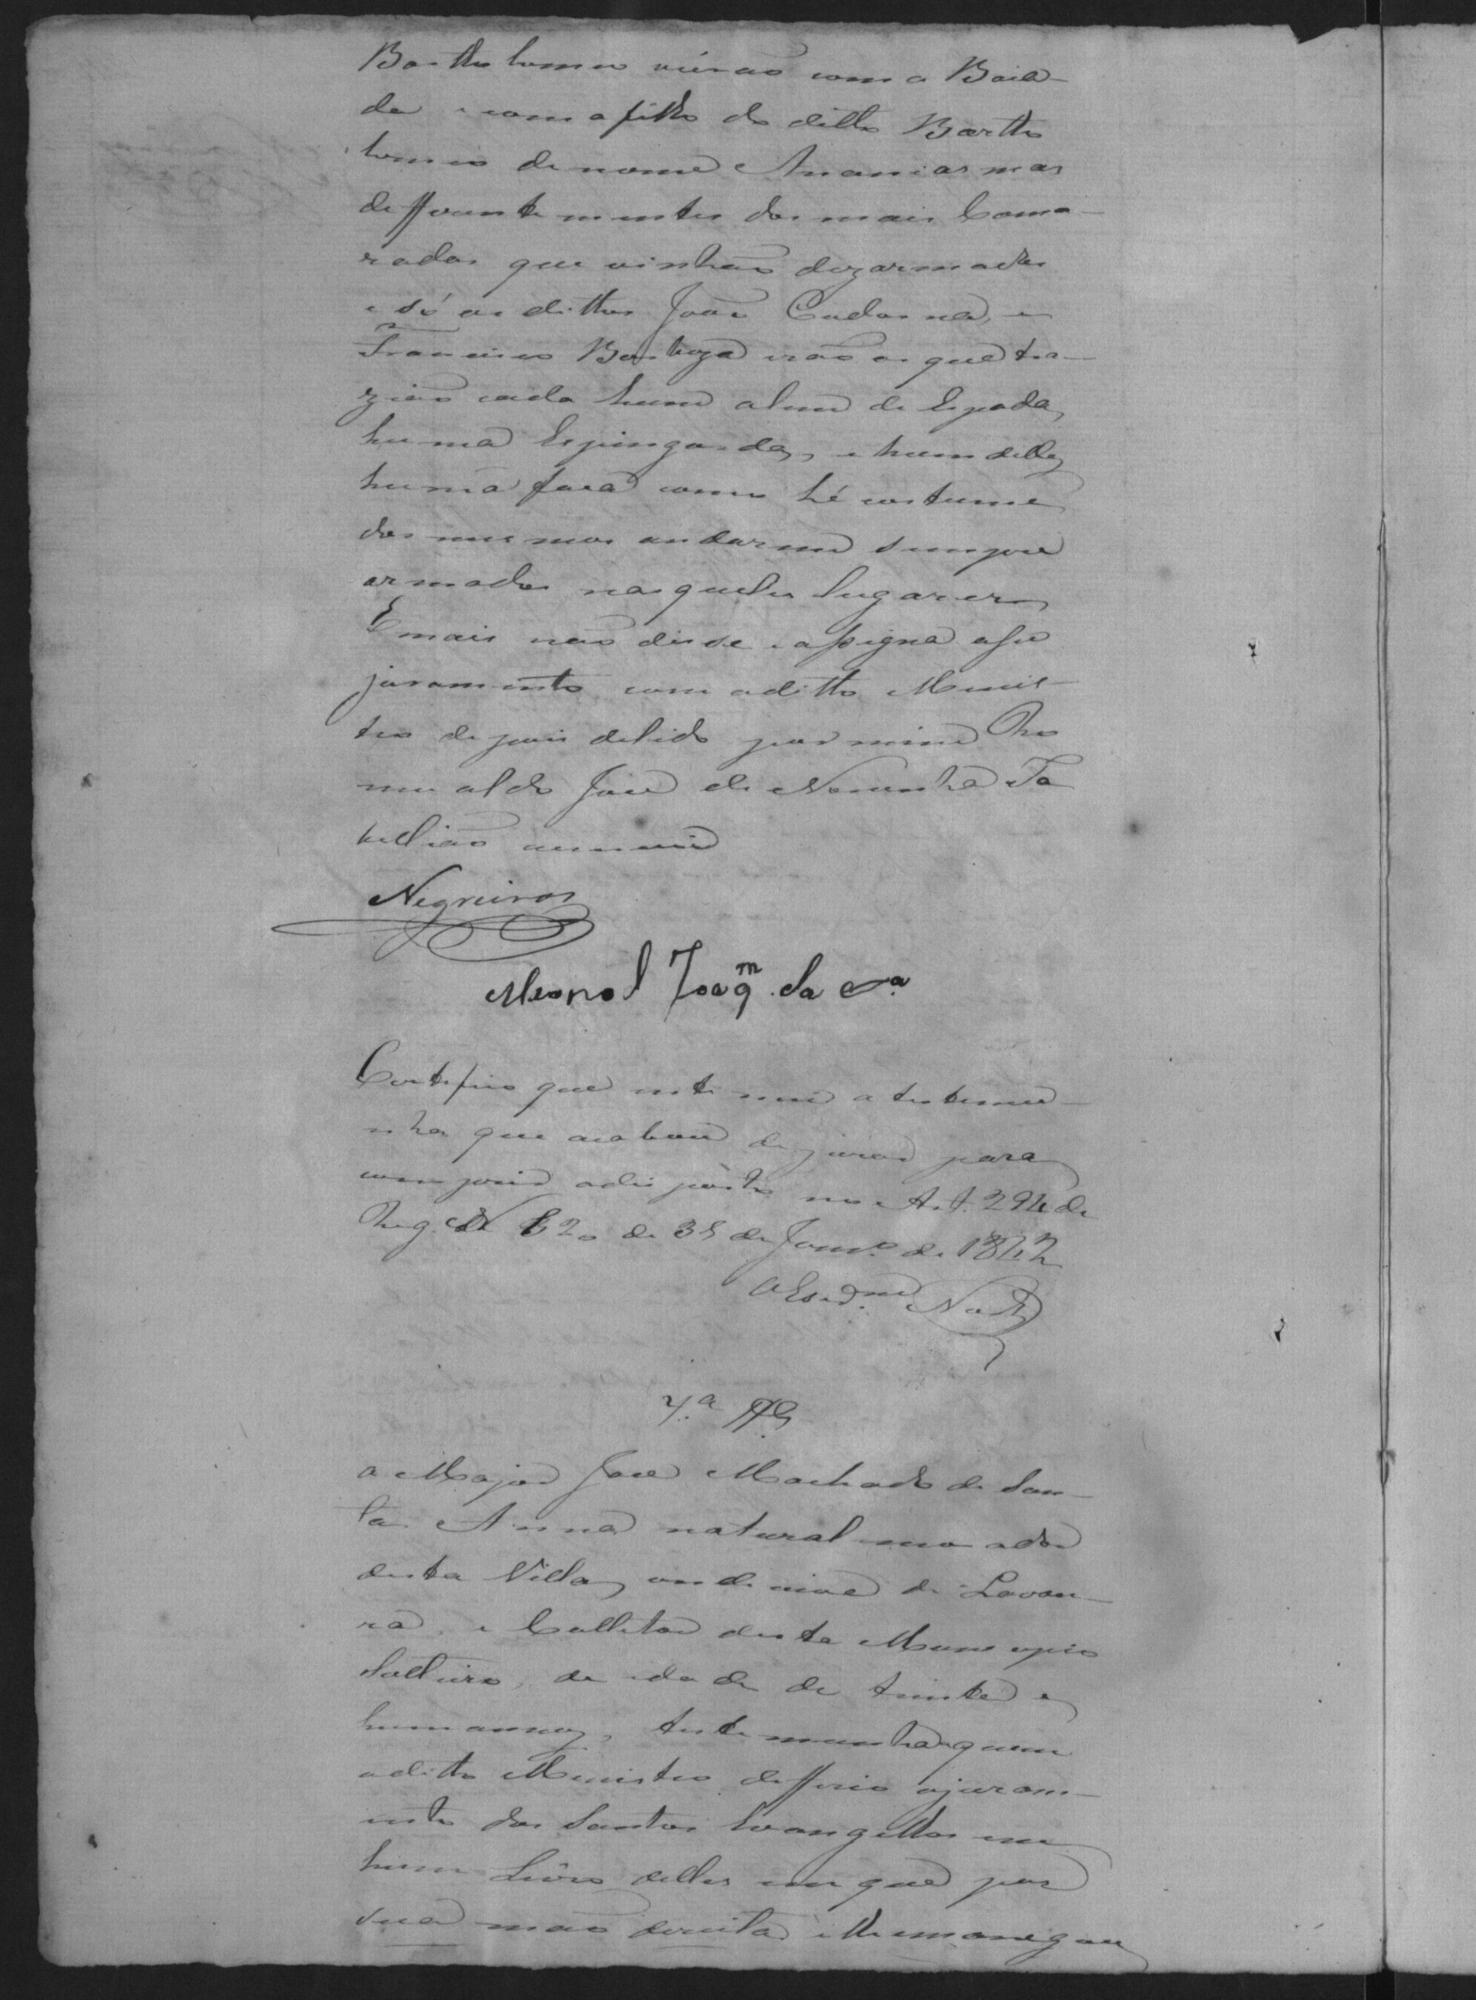 Bartholomeo viérão com a Boia-
da e com o filho do ditto Bartho
lomeo de nome Ananias mas
defferente mentes dos mais Cama-
radas que vinhão dezarmados
e só os dittos João
Francisco Barboza erão os que tra-
zião cada hum alem de Espada,
huma Espingarda, e hum delles
huma faca como hé costume
dos mesmos andarem sempre
armados naqueles lugares
E mais não disse e assigna o seu
juramento com o ditto Minis-
tro depois de lido por mim Ro
mualdo José de Noronha Ta
bellião escrevi
Negreiros
Manoel Joaqm da Sa
Certefico que intimei a testemu-
nha que acabou de jurar para
comprir o disposto no Art. 294 do
Reg. N 120 de 31 de Janro de 1842
O Escrm Nora
4.ª Ta
O Major José Machado de San-
ta Anna natural morador
desta Villa, onde vive de Lavou-
ra, e Colletor deste Municipio
Solteiro, de idade de trinta e
hum annos, testemunha a quem
o ditto Ministro defferio o juram-
ento dos Santos Evangelhos em
hum Livro delles em que por
sua mão direita e lhe encarregou